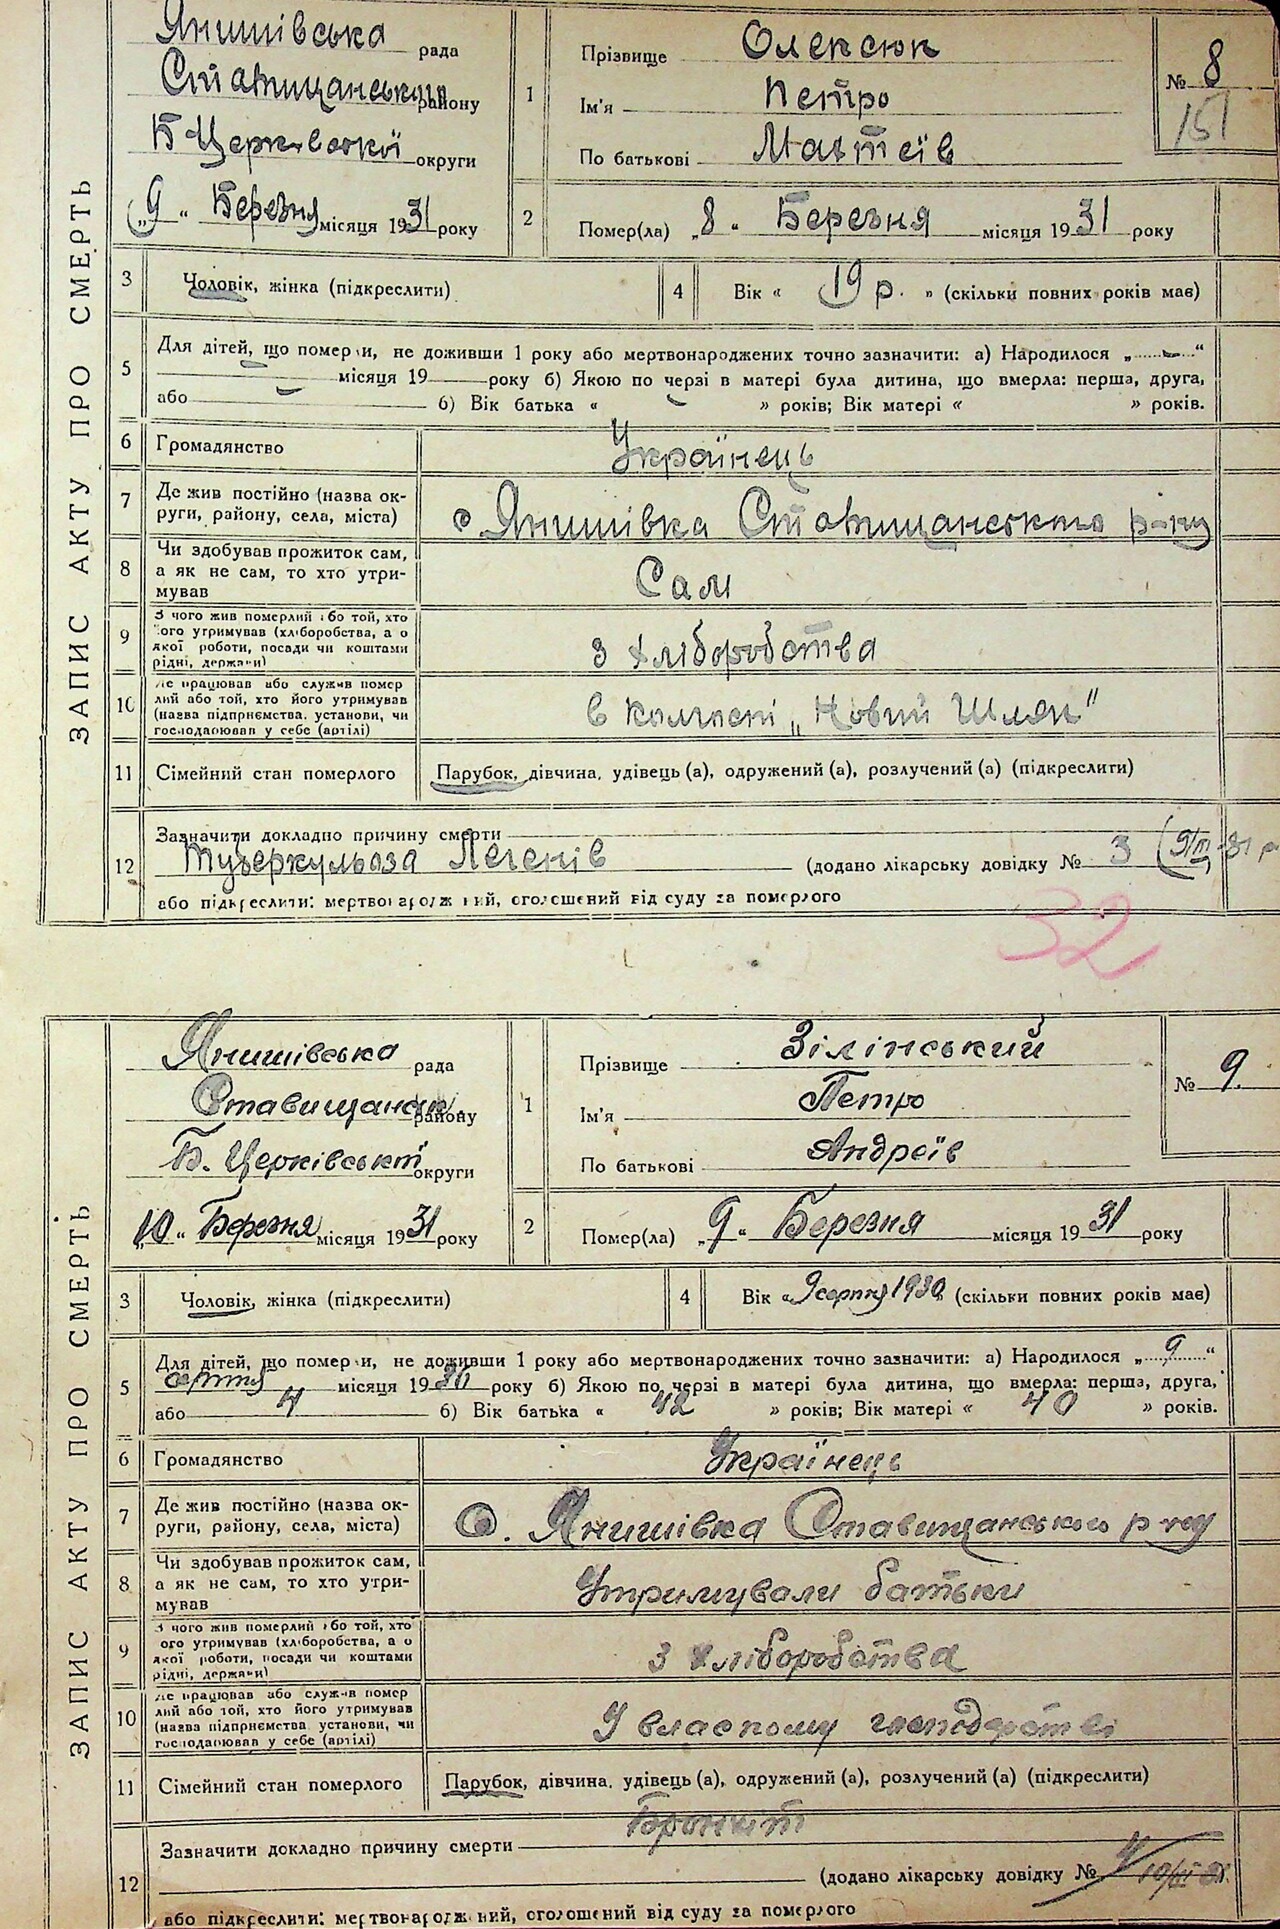 ЗАПИС АКТУ ПРО СМЕРТЬ
Янишівська рада
Ставищанського району
Б-Церківської округи
„9“ Березня місяця 1931 року
1
Прізвище Олексюк
Ім'я Петро
По батькові Матвіїв
№ 8
151
2
Помер(ла) „8“ Березня місяця 1931 року
3
Чоловік, жінка (підкреслити)
4
Вік « 19 р. » (скільки повних років має)
5
Для дітей, що померли, не доживши 1 року або мертвонароджених точно зазначити: а) Народилося „ — “
— місяця 19 року б) Якою по черзі в матері була дитина, що вмерла: перша, друга,
або — б) Вік батька « » років; Вік матері « » років.
6
Громадянство
Українець
7
Де жив постійно (назва ок-
руги, району, села, міста)
с Янишівка Ставищанського р-ну
8
Чи здобував прожиток сам,
а як не сам, то хто утри-
мував
Сам
9
З чого жив померлий або той, хто
його утримував (хліборобства, з
якої роботи, посади чи коштами
рідні, держави)
з хліборобства
10
Де працював або служив помер
лий або той, хто його утримував
(назва підприємства, установи, чи
господарював у себе (артілі)
в колгоспі „Новий Шлях“
11
Сімейний стан померлого
Парубок, дівчина, удівець (а), одружений (а), розлучений (а) (підкреслити)
12
Зазначити докладно причину смерти
туберкульоза Легенів (додано лікарську довідку № 3 (9/III-31 р.
або підкреслити: мертвонароджений, оголошений від суду за померлого
32
ЗАПИС АКТУ ПРО СМЕРТЬ
Янишівська рада
Ставищанськ. району
Б. Церківської округи
„10“ Березня місяця 1931 року
1
Прізвище Зілінський
Ім'я Петро
По батькові Андреїв
№ 9.
2
Помер(ла) „9“ Березня місяця 1931 року
3
Чоловік, жінка (підкреслити)
4
Вік « 9 серпня 1930 » (скільки повних років має)
5
Для дітей, що померли, не доживши 1 року або мертвонароджених точно зазначити: а) Народилося „ 9 “
серпня місяця 1930 року б) Якою по черзі в матері була дитина, що вмерла: перша, друга,
або 4 б) Вік батька « 42 » років; Вік матері « 40 » років.
6
Громадянство
Українець
7
Де жив постійно (назва ок-
руги, району, села, міста)
С. Янишівка Ставищанського р-ну
8
Чи здобував прожиток сам,
а як не сам, то хто утри-
мував
Утримували батьки
9
З чого жив померлий або той, хто
його утримував (хліборобства, з
якої роботи, посади чи коштами
рідні, держави)
з хліборобства
10
Де працював або служив помер
лий або той, хто його утримував
(назва підприємства, установи, чи
господарював у себе (артілі)
У власному господарстві
11
Сімейний стан померлого
Парубок, дівчина, удівець (а), одружений (а), розлучений (а) (підкреслити)
12
Зазначити докладно причину смерти Бронхіт
(додано лікарську довідку № 4/10/III 31.
або підкреслити: мертвонароджений, оголошений від суду за померлого